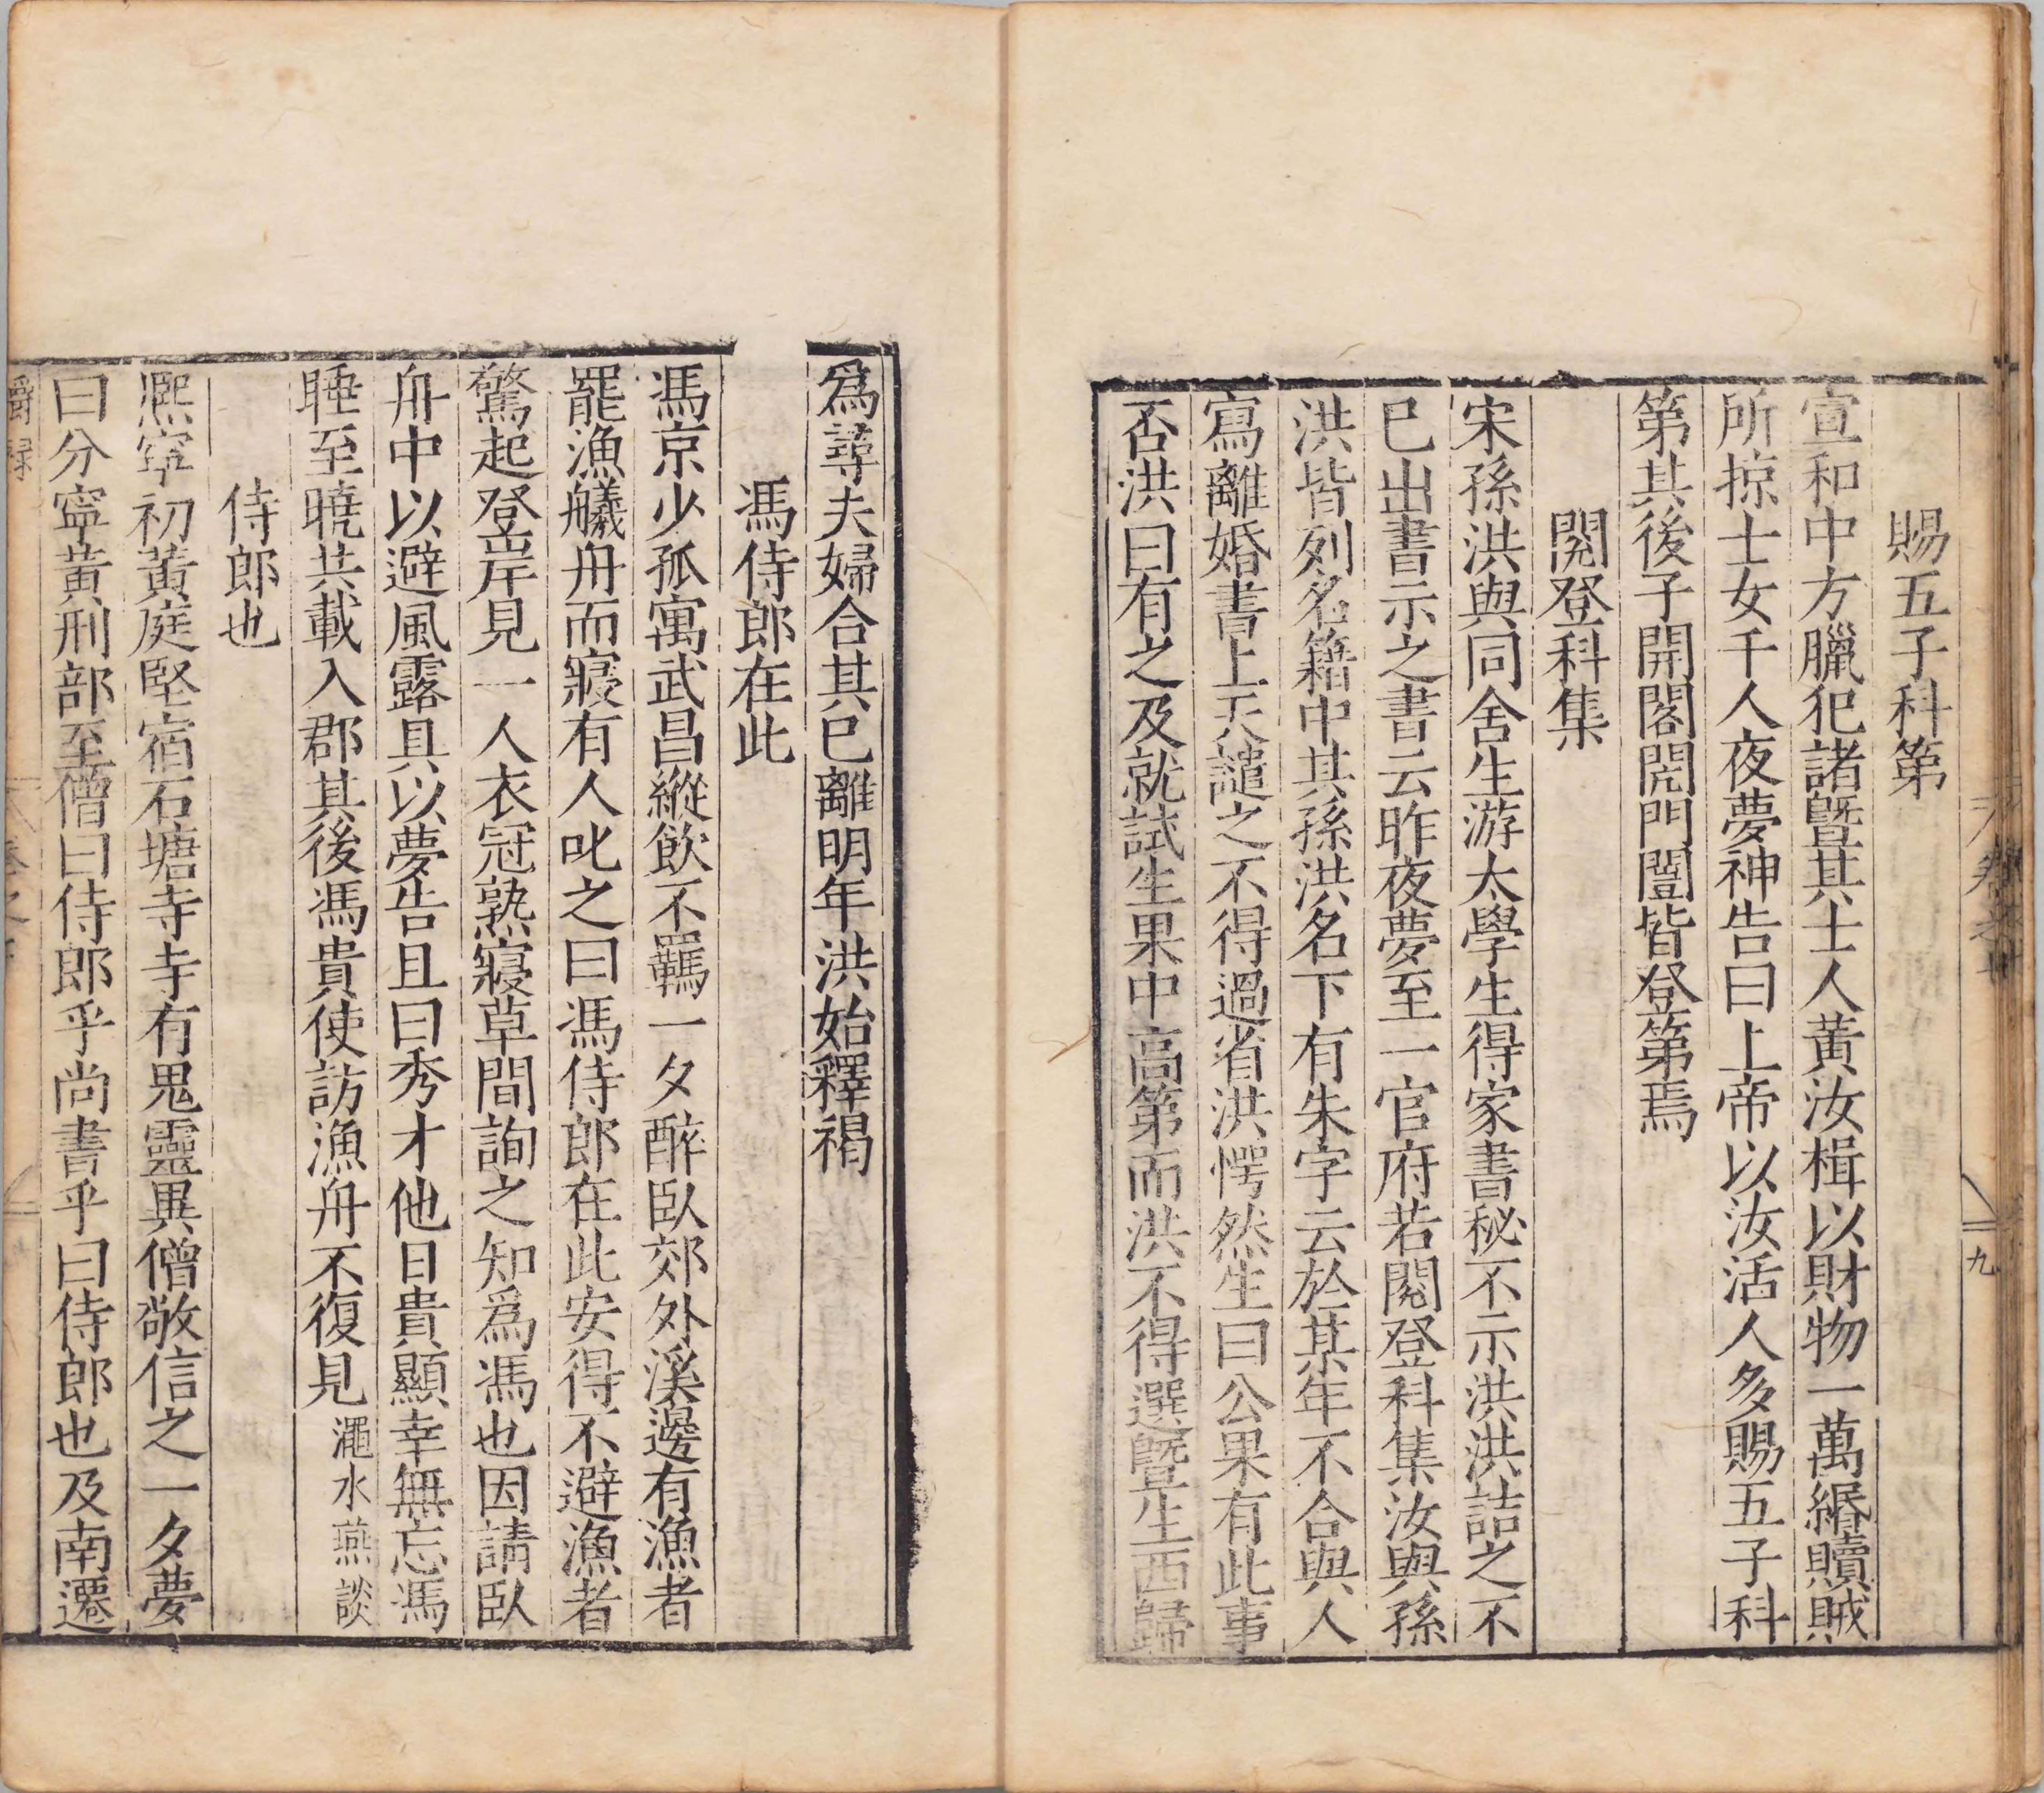 賜五子科第
宣和中方臘犯諸暨其士人黃汝楫以財物一萬緡贖賊
所掠士女千人夜夢神告曰上帝以汝活人多賜五子科
第其後子開閣閌門闓皆登第焉
閱登科集
宋孫洪與同舍生游太學生得家書秘不示洪洪詰之不
巳出書示之書云昨夜夢至一官府若閱登科集汝與孫
洪皆列名籍中其孫洪名下有朱字云於某年不合與人
寫離婚書上天譴之不得過省洪愕然生曰公果有此事
否洪曰有之及就試生果中高第而洪不得選暨生西歸
九
爲尋夫婦合其巳離明年洪始釋褐
馮侍郎在此
馮京少孤寓武昌縱飲不羈一夕醉臥郊外溪邊有漁者
罷漁艤舟而寢有人叱之曰馮侍郎在此安得不避漁者
驚起登岸見一人衣冠熟寢草間詢之知爲馮也因請臥
舟中以避風露具以夢告且曰秀才他日貴顯幸無忘馮
睡至曉共載入郡其後馮貴使訪漁舟不復見 澠水燕談
侍郎也
熙寧初黃庭堅宿石塘寺寺有鬼靈異僧敬信之一夕夢
曰分寧黃刑部至僧曰侍郎乎尚書乎曰侍郎也及南遷